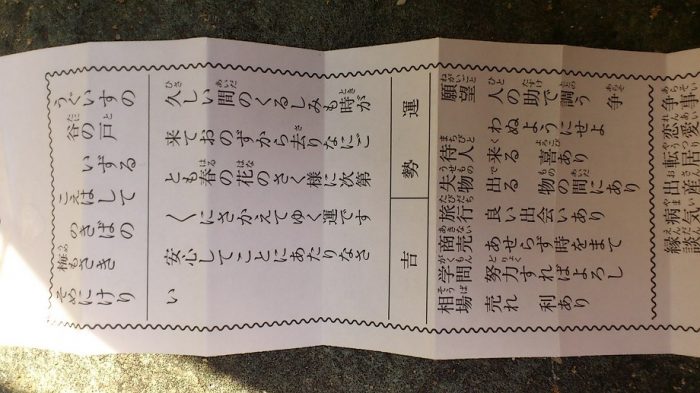 うぐいすの
谷の戸いずる
こえはして
のきばの
梅もさき
そめにけり
久しい間のくるしみも時が
来ておのずから去りなにご
とも春の花のさく様に次第
〱にさかえてゆく運です
安心してことにあたりなさ
い
運勢 吉
願望 人の助で調う 争
わぬようにせよ
待人 来る 喜あり
失物 出る 物の間にあり
旅行 良い出会いあり
商売 あせらず時をまて
学問 努力すればよろし
相場 売れ 利あり
争事
恋愛
転居
出産
病気
縁談